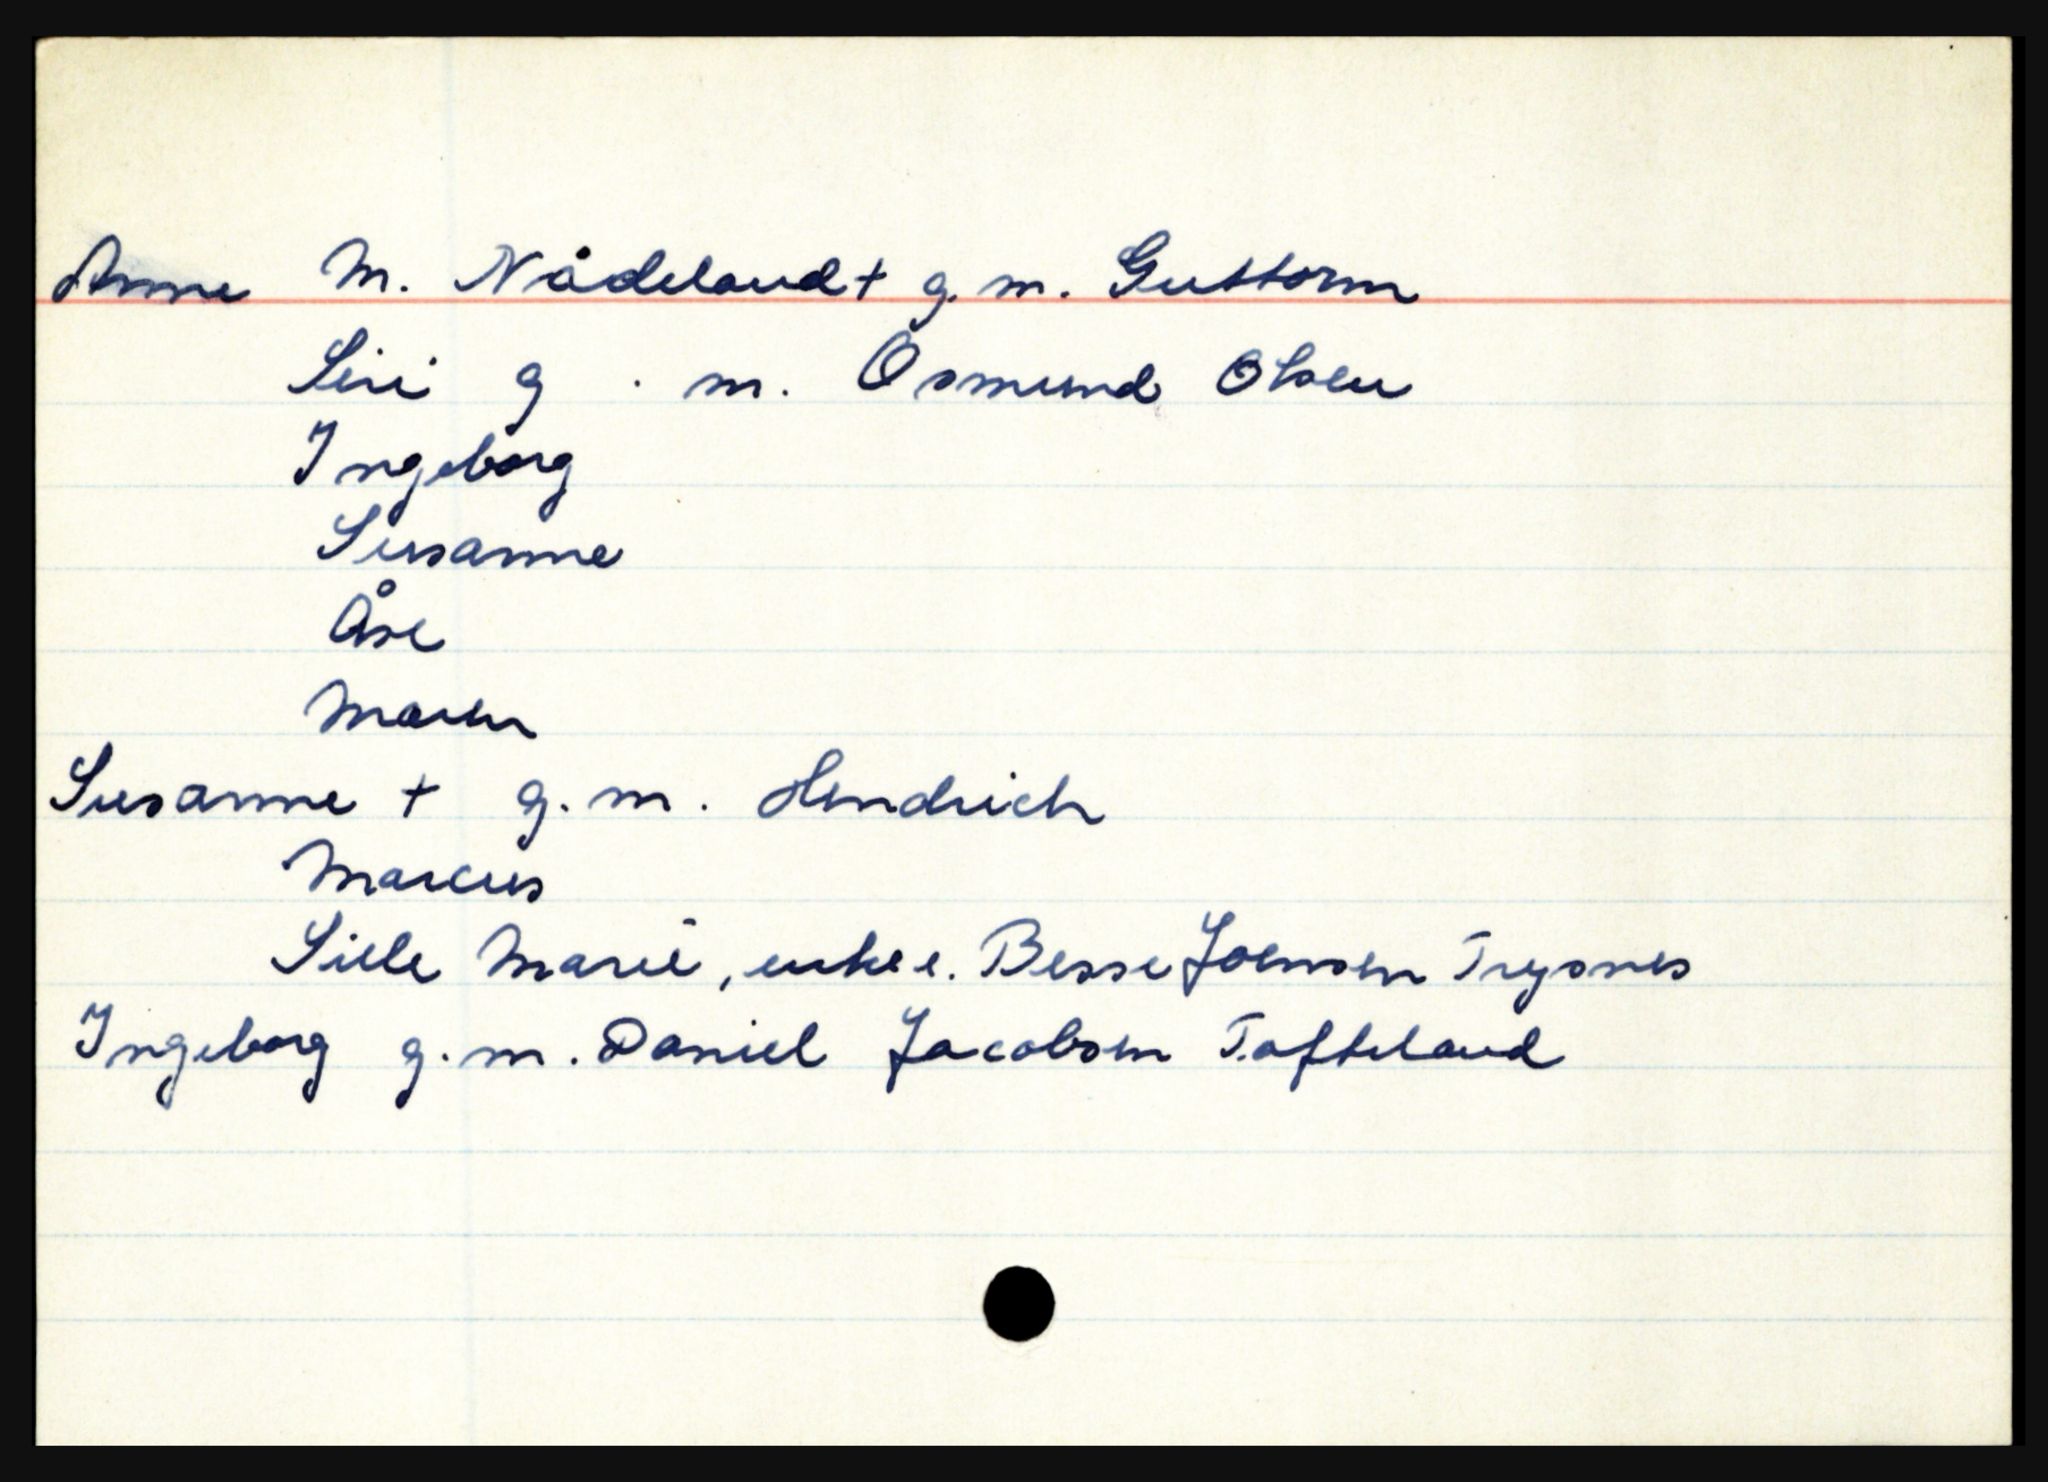 Anne M. Nådeland + g. m. Guttorm
Siri g. m. Osmund Olsen
Ingeborg
Susanne
Åse
Maren
Susanne + g. m. Hendrich
Marcus
Sille Marie, enke e. Besse Joensen Trysnes
Ingeborg g. m. Daniel Jacobsen Tofteland